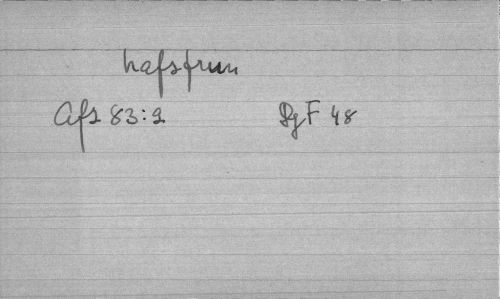 hafsfrun
Afs 83:2 DgF 48